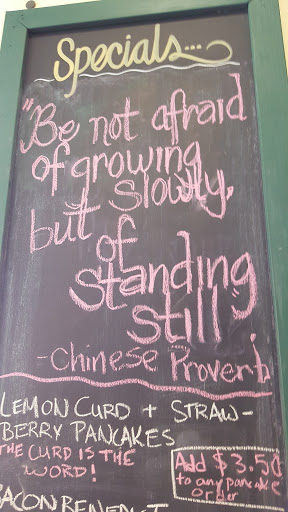 Specials...
"Be not afraid
of growing
slowly,
but
of
standing
still"
-Chinese Proverb
LEMON CURD + STRAW-
BERRY PANCAKES
THE CURD IS THE
WORD!
Add $3.50
to any pancake
order
BACON BENEDICT